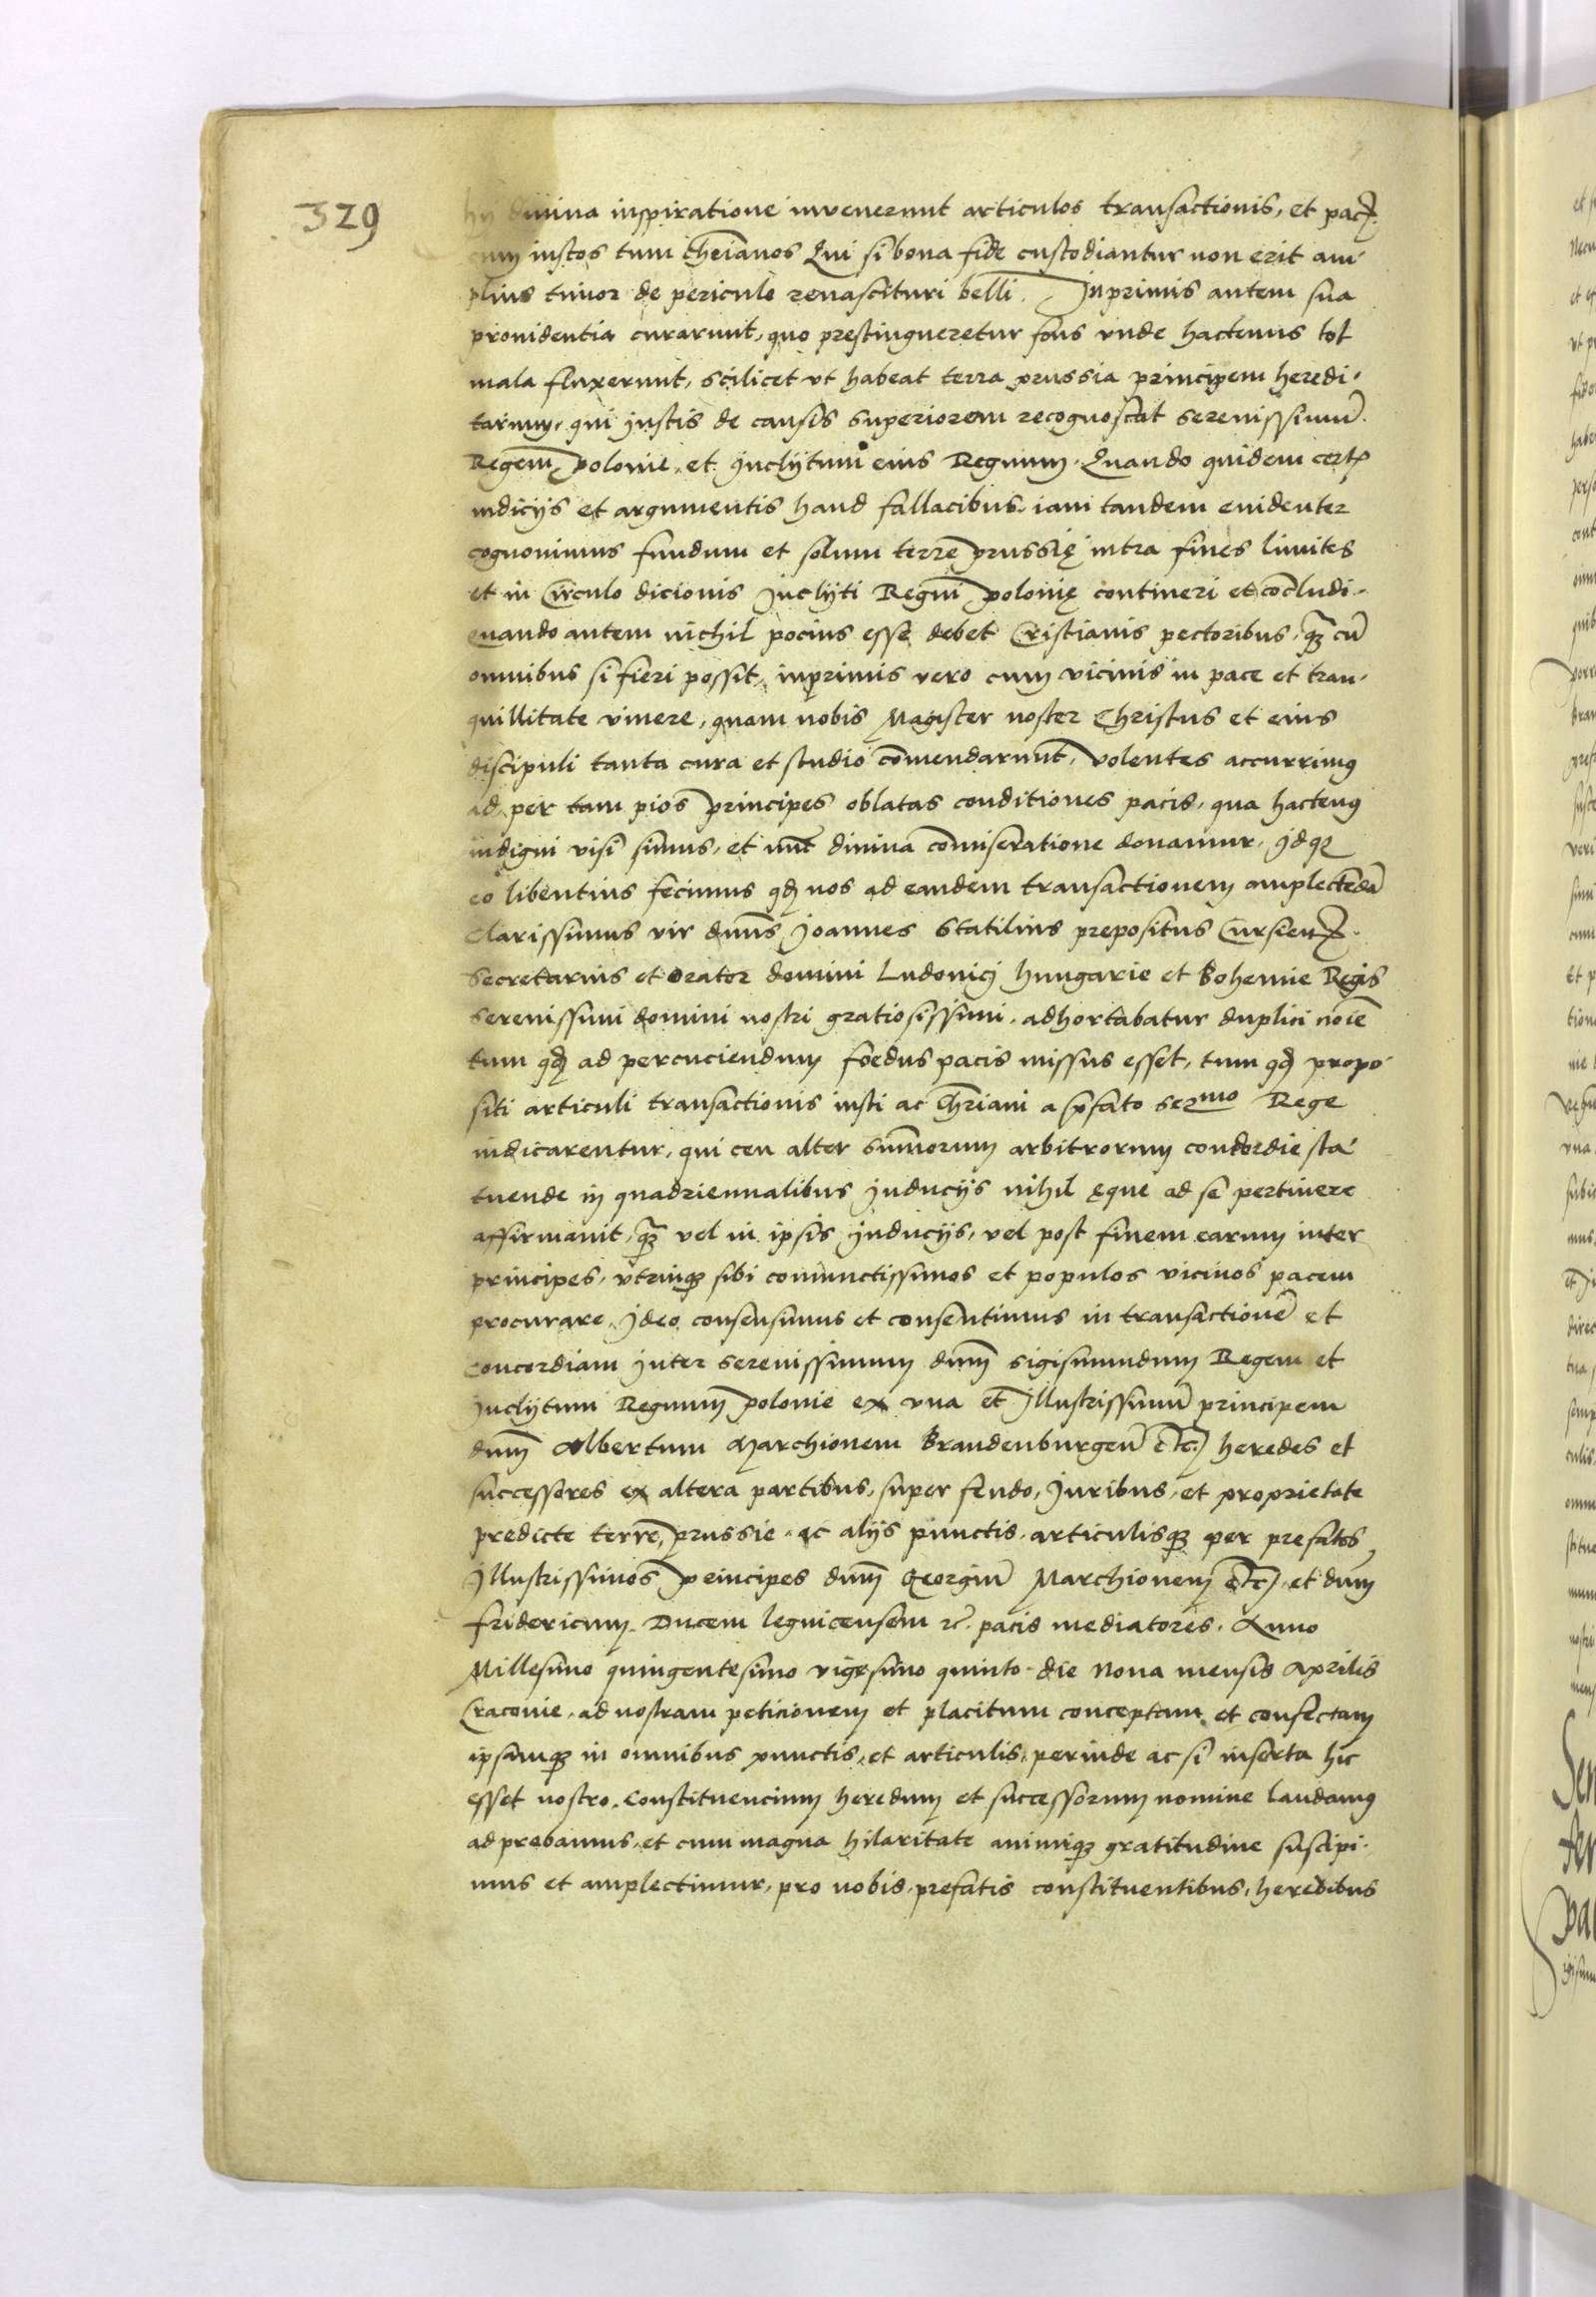 329
hij diuina inspiratione inuenerunt articulos transactionis, et pac
cum iustos tum chrianos Qui si bona fide custodiantur non erit am¬
plius timor de periculo renascituri belli. Inprimis autem sua
prouidentia curarunt, quo prestingueretur fons vnde hactenus tot
mala fluxerunt, scilicet vt habeat terra prussia principem heredi,
tarium, qui justis de causis superiorem recognoscat serenissimū.
Regem polonie, et jnclijtum eius Regnum. Quando quidem cert
indicijs et argumentis haud fallacibus, iam tandem euidenter
cognouimus fundum et solum terre prussię intra fines limites
et in circulo dicionis Jnclijti Regni polonię contineri et cōcludi.
quando autem nichil pocius esse debet Cristianis pectoribus, quā cū
omnibus si fieri possit, inprimis vero cum vicinis in pace et tran,
quillitate viuere, quam nobis Magister noster Christus et eius
discipuli tanta cura et studio cōmendarunt, volentes accurrimus
ad per tam pios principes oblatas conditiones pacis, qua hactenus
indigni visi sumus, et nūc diuina cōmiseratione donamur, jdque
eo libentius fecimus quod nos ad eandem transactionem amplectēdā
Clarissimus vir dnns Joannes Statilius prepositus Cursien.
Secretarius et Orator domini Ludouicj hungarie et Bohemie Regis
Serenissimi domini nostri gratiosissimi, adhortabatur duplici noīe
tum quod ad percuciendum foedus pacis missus esset, tum quod propo¬
siti articuli transactionis iusti ac chriani a pfato sermo Rege
iudicarentur, qui ceu alter summorum arbitrorum concordie sta¬
tuende in quadriennalibus jnducijs nihil ęque ad se pertinere
affirmauit, quā vel in ipsis jnducijs, vel post finem earum inter
principes, vtrinque sibi coniunctissimos et populos vicinos pacem
procurare, jdeo consensimus et consentimus in transactionē et
concordiam jnter serenissimum dnm sigismundum Regem et
jnclijtum Regnum polonie ex vna et Jllustrissimū principem
dnm Albertum Marchionem Brandenburgen etc heredes et
successores ex altera partibus, super feudo, Juribus, et proprietate
predicte terre, prussie, ac alijs punctis, articulisque per prefatos
Jllustrissimos principes dnm Georgiū Marchionem etc, et dnm
fridericum Ducem legnicensem etc. pacis mediatores. Anno
Millesimo quingentesimo vigesimo quinto die Nona mensis Aprilis
Craconie, ad nostram peticionem et placitum conceptam et confectam
ipsamque in omnibus punctis, et articulis, perinde ac si inserta hic
esset nostro, Constituencium heredum et successorum nomine laudamus
adprobamus, et cum magna hilaritate animique gratitudine suscipi,
mus et amplectimur, pro nobis, prefatis constituentibus, heredibus